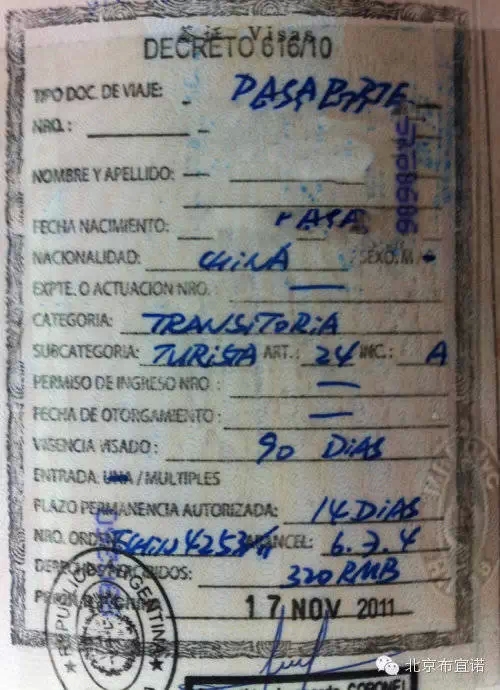 签证 Visas
DECRETO 616/10
TIPO DOC. DE VIAJE: PASAPORTE
NRO.:
NOMBRE Y APELLIDO:
FECHA NACIMIENTO: PASA
NACIONALIDAD: CHINA SEXO: M
EXPTE. O ACTUACION NRO.: —
CATEGORIA: TRANSITORIA
SUBCATEGORIA: TURISTA ART.: 24 INC.: A
PERMISO DE INGRESO NRO: —
FECHA DE OTORGAMIENTO: —
VIGENCIA VISADO: 90 DIAS
ENTRADA: UNA / MULTIPLES
PLAZO PERMANENCIA AUTORIZADA: 14 DIAS
NRO. ORDEN ARANCEL: 6.7.4
320 RMB
17 NOV 2011
REPUBLICA ARGENTINA
北京布宜诺